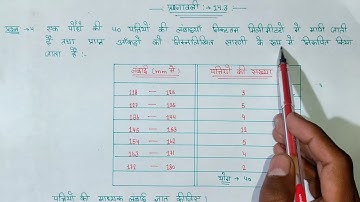 प्रश्नावली :- 14.3
प्रश्न → एक पौधे की 40 पत्तियों की लम्बाइयाँ निकटतम मिलीमीटरों में मापी जाती
है तथा प्राप्त आँकड़ों को निम्नलिखित सारणी के रूप में निरूपित किया
जाता है :-
लंबाई (mm में) पत्तियों की संख्या
118 — 126 3
127 — 135 5
136 — 144 9
145 — 153 12
154 — 162 5
163 — 171 4
172 — 180 2
योग = 40
पत्तियों की माध्यक लंबाई ज्ञात कीजिए।